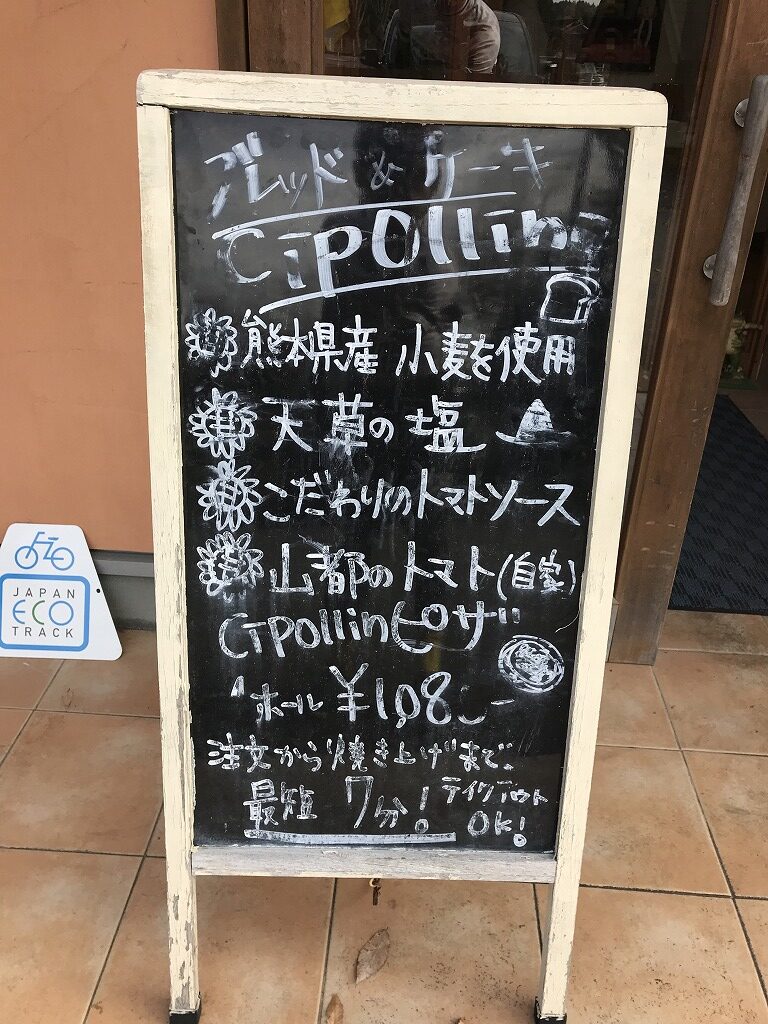 ブレッド & ケーキ
Cipollin
熊本県産 小麦を使用
天草の塩
こだわりのトマトソース
山都のトマト(自家)
Cipollinピザ
ホール ¥1,08
注文から焼き上げまで、
最短 7分! テイクアウト
OK!
JAPAN
ECO
TRACK